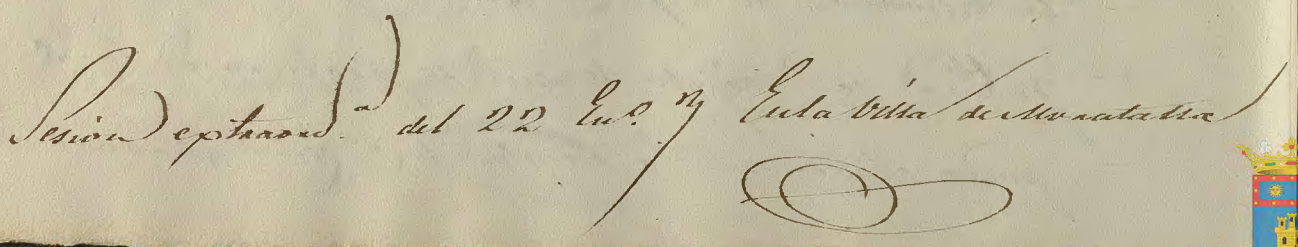 Sesion extraord.ª del 22 En.º En la Villa de Moratalla